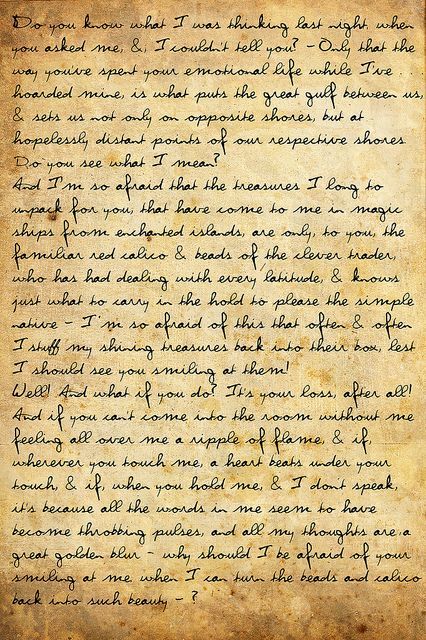 Do you know what I was thinking last night when
you asked me, &, I couldn't tell you? - Only that the
way you've spent your emotional life while I've ...
hoarded mine, is what puts the great gulf between us,
& sets us not only on opposite shores, but at
hopelessly distant points of our respective shores.
Do you see what I mean?
And I'm so afraid that the treasures I long to
unpack for you, that have come to me in magic
ships from enchanted islands, are only, to you, the
familiar red calico & beads of the clever trader,
who has had dealing with every latitude, & knows
just what to carry in the hold to please the simple
native - I'm so afraid of this that often & often
I stuff my shining treasures back into their box, lest
I should see you smiling at them!
Well! And what if you do? It's your loss, after all!
And if you can't come into the room without me
feeling all over me a ripple of flame, & if,
wherever you touch me, a heart beats under your
touch, & if, when you hold me, & I don't speak,
it's because all the words in me seem to have
become throbbing pulses, and all my thoughts are a
great golden blur - why should I be afraid of your
smiling at me, when I can turn the beads and calico
back into such beauty - ?